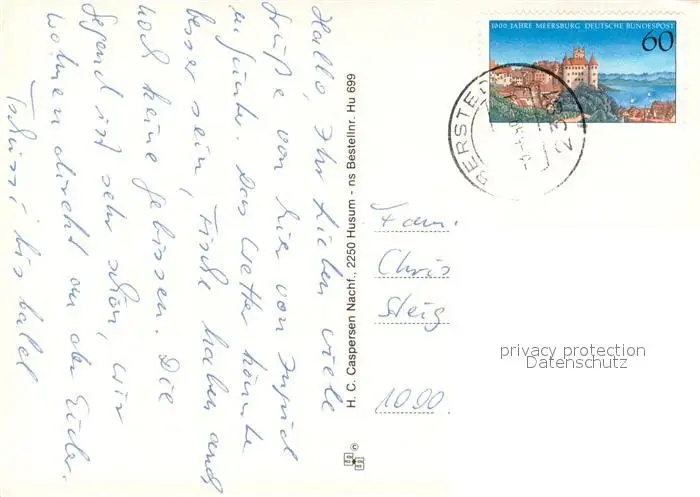 Hallo, Ihr Lieben viele
Grüße von hier von Ingrid
u. Günter. Das Wetter könnte
besser sein, Fische haben auch
noch keine gebissen. Die
Gegend ist sehr schön, wir
wohnen direkt an der Eider.
Tschüssi bis bald
H. C. Caspersen Nachf., 2250 Husum - ns Bestellnr. Hu 699
©
1000 JAHRE MEERSBURG DEUTSCHE BUNDESPOST
60
BERSTED
2381
Fam.
Chris
Steig
1000
privacy protection
Datenschutz